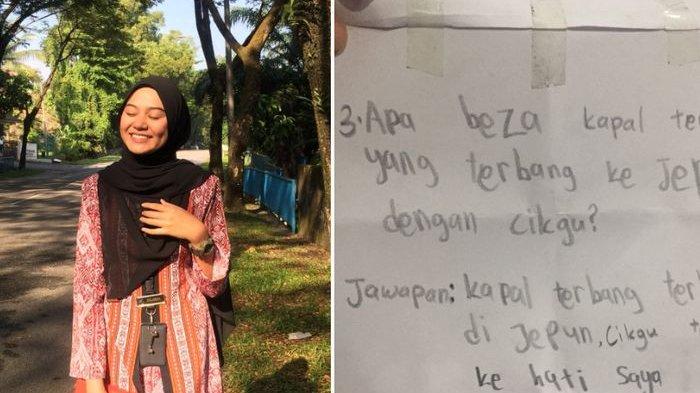 3. Apa beza kapal
yang terbang ke
dengan cikgu?
Jawapan: kapal terbang
di Jepun, cikgu
ke hati saya